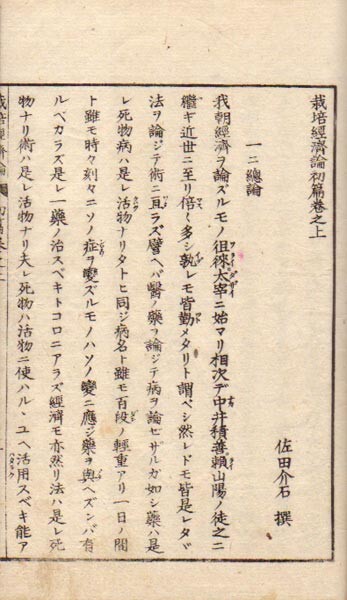 栽培經濟論初篇卷之上
佐田介石 撰
一二總論
我朝經濟ヲ論ズルモノ徂徠太宰ニ始マリ相次デ中井積善賴山陽ノ徒之ニ
繼ギ近世ニ至リ倍〻多シ孰レモ皆勤メタリト謂ベシ然レドモ皆是レタヾ
法ヲ論ジテ術ニ亘ラズ譬ヘバ醫ノ藥ヲ論ジテ病ヲ論ゼザルガ如シ藥ハ是
レ死物病ハ是レ活物ナリタトヒ同ジ病名ト雖モ百段ノ輕重アリ一日ノ間
ト雖モ時々刻々ニソノ症ヲ變ズルモノハソノ變ニ應ジ藥ヲ與ヘズンバ有
ルベカラズ是レ一藥ノ治スベキトコロニアラズ經濟モ亦然リ法ハ是レ死
物ナリ術ハ是レ活物ナリ夫レ死物ハ活物ニ使ハルヽユヘ活用スベキ能ア
栽培經濟論 初篇卷之上